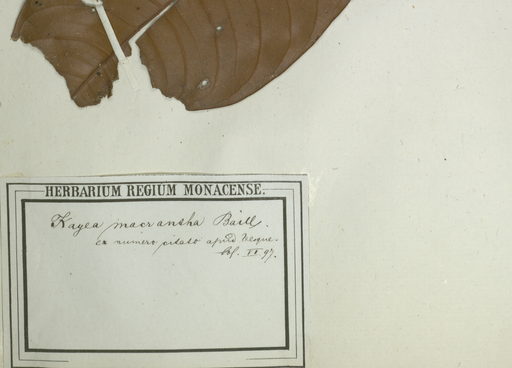 HERBARIUM REGIUM MONACENSE.
Kayea macrantha Baill.
ex numero citato apud Vesque.
97.